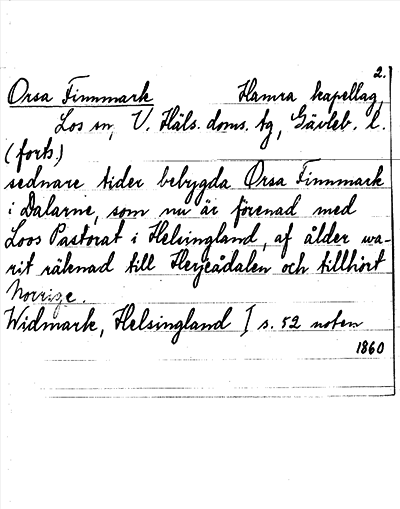 2.
Orsa Finnmark Hamra kapellag,
Los sn, V. Häls. doms. tg, Gävleb. l.
(forts.)
sednare tider bebygda Orsa Finnmark
i Dalarne, som nu är förenad med
Loos Pastorat i Helsingland, af ålder wa-
rit räknad till Herjeådalen och tillhört
Norrige.
Widmark, Helsingland I s. 52 noten
1860